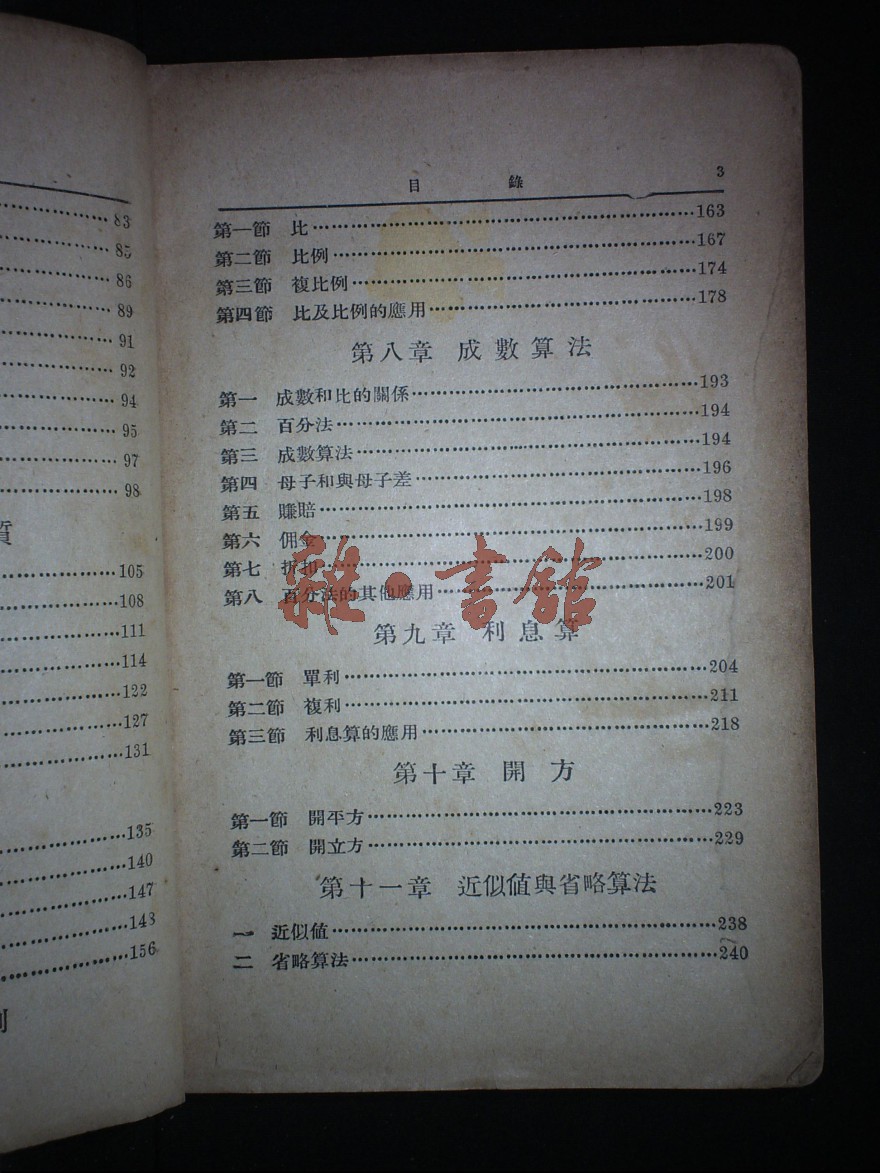 83
85
86
89
91
92
94
95
97
98
質
105
108
111
114
122
127
131
135
140
147
148
156
目 錄 3
第一節 比 163
第二節 比例 167
第三節 複比例 174
第四節 比及比例的應用 178
第八章 成數算法
第一 成數和比的關係 193
第二 百分法 194
第三 成數算法 194
第四 母子和與母子差 196
第五 賺賠 198
第六 佣金 199
第七 折扣 200
第八 百分法的其他應用 201
雜·書館
第九章 利息算
第一節 單利 204
第二節 複利 211
第三節 利息算的應用 218
第十章 開方
第一節 開平方 223
第二節 開立方 229
第十一章 近似値與省略算法
一 近似値 238
二 省略算法 240